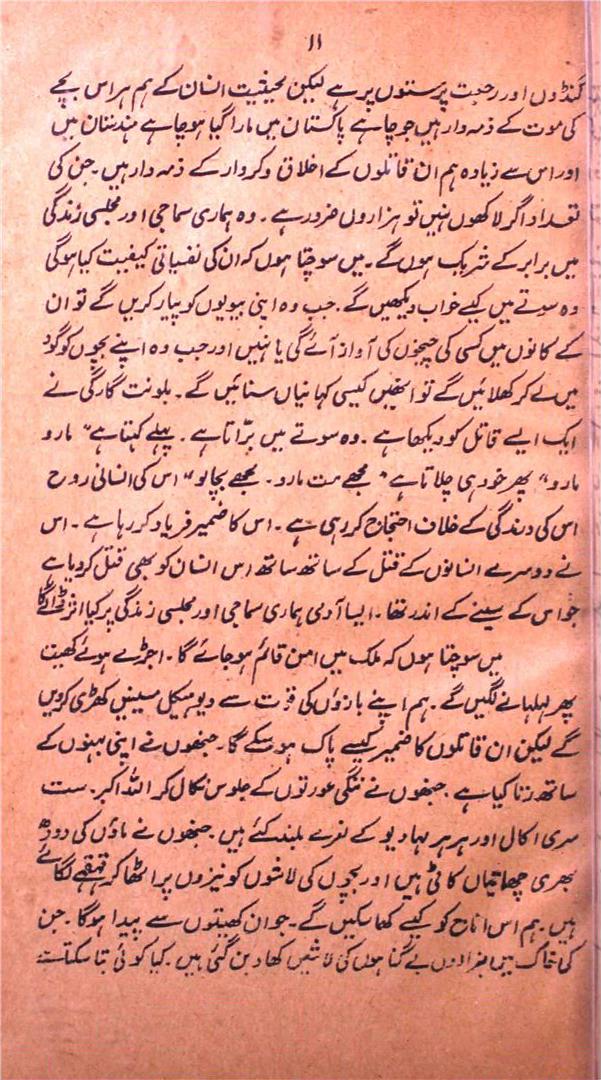 ۱۱
گنڈوں اور رجعت پرستوں پر ہے لیکن بحیثیت انسان کے ہم ہر اس بچے
کی موت کے ذمہ دار ہیں جو چاہے پاکستان میں مارا گیا ہو چاہے ہندستان میں
اور اس سے زیادہ ہم ان قاتلوں کے اخلاق و کردار کے ذمہ دار ہیں۔ جن کی
تعداد اگر لاکھوں نہیں تو ہزاروں ضرور ہے۔ وہ ہماری سماجی اور مجلسی زندگی
میں برابر کے شریک ہوں گے۔ میں سوچتا ہوں کہ ان کی نفسیاتی کیفیت کیا ہوگی
وہ سوتے میں کیسے خواب دیکھیں گے۔ جب وہ اپنی بیویوں کو پیار کریں گے تو ان
کے کانوں میں کسی کی چیخوں کی آواز آئے گی یا نہیں اور جب وہ اپنے بچوں کو گود
میں لے کر کھلائیں گے تو انھیں کیسی کہانیاں سنائیں گے۔ بلونت گارگی نے
ایک ایسے قاتل کو دیکھا ہے۔ وہ سوتے میں بڑاتا ہے۔ پہلے کہتا ہے "مارو
مارو" پھر خود ہی چلاتا ہے "مجھے مت مارو۔ مجھے بچالو" اس کی انسانی روح
اس کی درندگی کے خلاف احتجاج کر رہی ہے۔ اس کا ضمیر فریاد کر رہا ہے۔ اس
نے دوسرے انسانوں کے قتل کے ساتھ ساتھ اس انسان کو بھی قتل کر دیا ہے
جو اس کے سینے کے اندر تھا۔ ایسا آدمی ہماری سماجی اور مجلسی زندگی پر کیا اثر ڈالے گا
میں سوچتا ہوں کہ ملک میں امن قائم ہو جائے گا۔ اجڑے ہوئے کھیت
پھر لہلہانے لگیں گے۔ ہم اپنے بازوؤں کی قوت سے دیو ہیکل مشینیں کھڑی کر دیں
گے لیکن ان قاتلوں کا ضمیر کیسے پاک ہو سکے گا۔ جنھوں نے اپنی بہنوں کے
ساتھ زنا کیا ہے۔ جنھوں نے ننگی عورتوں کے جلوس نکال کر اللہ اکبر۔ ست
سری اکال اور ہر ہر مہادیو کے نعرے بلند کئے ہیں۔ جنھوں نے ماؤں کی دودھ
بھری چھاتیاں کاٹی ہیں اور بچوں کی لاشوں کو نیزوں پر اٹھا کر قہقہے لگائے
ہیں۔ ہم اس اناج کو کیسے کھا سکیں گے۔ جو ان کھیتوں سے پیدا ہوگا۔ جن
کی خاک میں ہزاروں بے گناہوں کی لاشیں کھاد بن گئی ہیں۔ کیا کوئی بتا سکتا ہے